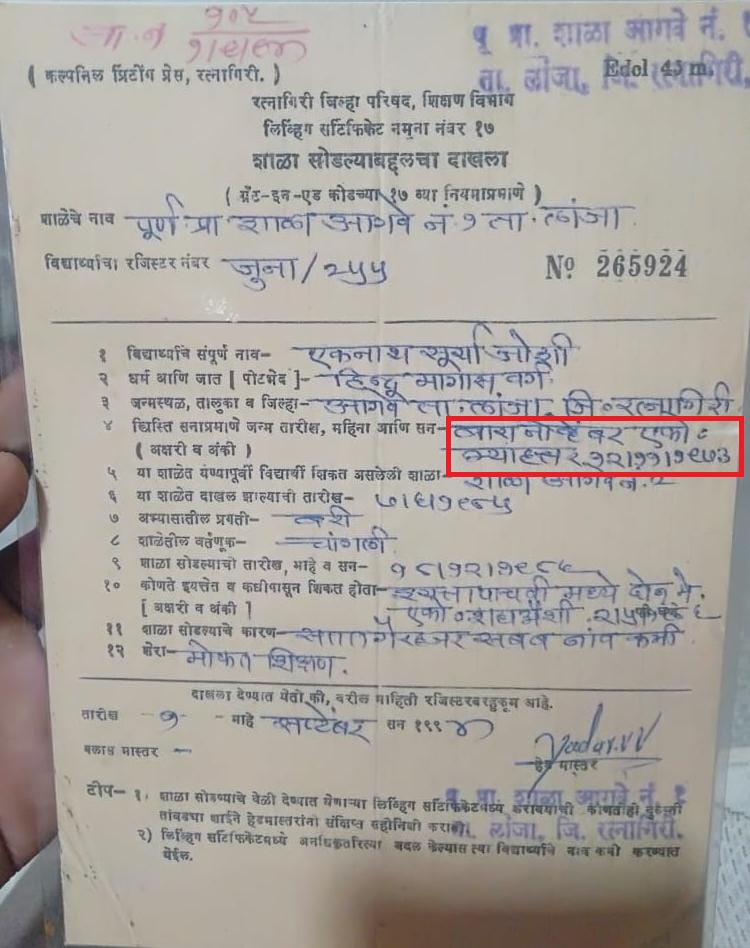 जा. न १०५
१।९।९४
पू. प्रा. शाळा आगवे नं. १
ता. लांजा, जि. रत्नागिरी,
( कल्पनिल प्रिंटींग प्रेस, रत्नागिरी. )
Edol 45 m.
रत्नागिरी जिल्हा परिषद, शिक्षण विभाग
लिव्हिंग सर्टिफिकेट नमुना नंबर १७
शाळा सोडल्याबद्दलचा दाखला
( ग्रँट-इन-एड कोडच्या १७ व्या नियमाप्रमाणे )
शाळेचे नाव पूर्ण प्रा शाळा आगवे नं १ ता. लांजा.
विद्यार्थ्याचा रजिस्टर नंबर जुना/२५५
Nº 265924
१ विद्यार्थ्याचे संपूर्ण नाव- एकनाथ सूर्या जोशी
२ धर्म आणि जात [ पोटभेद ]- हिन्दू मागास वर्ग
३ जन्मस्थळ, तालुका व जिल्हा- आगवे ता. लांजा. जि. रत्नागिरी
४ ख्रिस्ति सनाप्रमाणे जन्म तारीख, महिना आणि सन- बारा नोव्हेंबर एको
( अक्षरी व अंकी ) त्र्याहत्तर १२।११।१९७३
५ या शाळेत येण्यापूर्वी विद्यार्थी शिकत असलेली शाळा- शाळा आगवे नं. २
६ या शाळेत दाखल झाल्याची तारीख- ७।६।१९८५
७ अभ्यासातील प्रगती- बरी
८ शाळेतील वर्तणूक- चांगली
९ शाळा सोडल्याची तारीख, माहे व सन- १८।१२।१९८६
१० कोणते इयत्तेत व कधीपासून शिकत होता- इयत्ता पाचवी मध्ये दोन मे.
[ अक्षरी व अंकी ] एको. शहाऐंशी
११ शाळा सोडल्याचे कारण- सतत गैरहजर सबब नांव कमी
१२ शेरा- मोफत शिक्षण.
दाखला देण्यात येतो की, वरील माहिती रजिस्टरबरहुकूम आहे.
तारीख - १ - माहे सप्टेंबर सन १९९४
क्लास मास्तर -
Jadav.VV
हेड मास्तर
पू. प्रा. शाळा आगवे नं. १
ता. लांजा, जि. रत्नागिरी.
टीप- १. शाळा सोडण्याचे वेळी देण्यात येणाऱ्या लिव्हिंग सर्टिफिकेटमध्ये करावयाची कोणतीही दुरुस्ती
तांबड्या शाईने हेडमास्तरांनी संक्षिप्त सहीनिशी करावी.
२) लिव्हिंग सर्टिफिकेटमध्ये अनधिकृतरित्या बदल केल्यास त्या विद्यार्थ्याचे नाव कमी करण्यात
येईल.